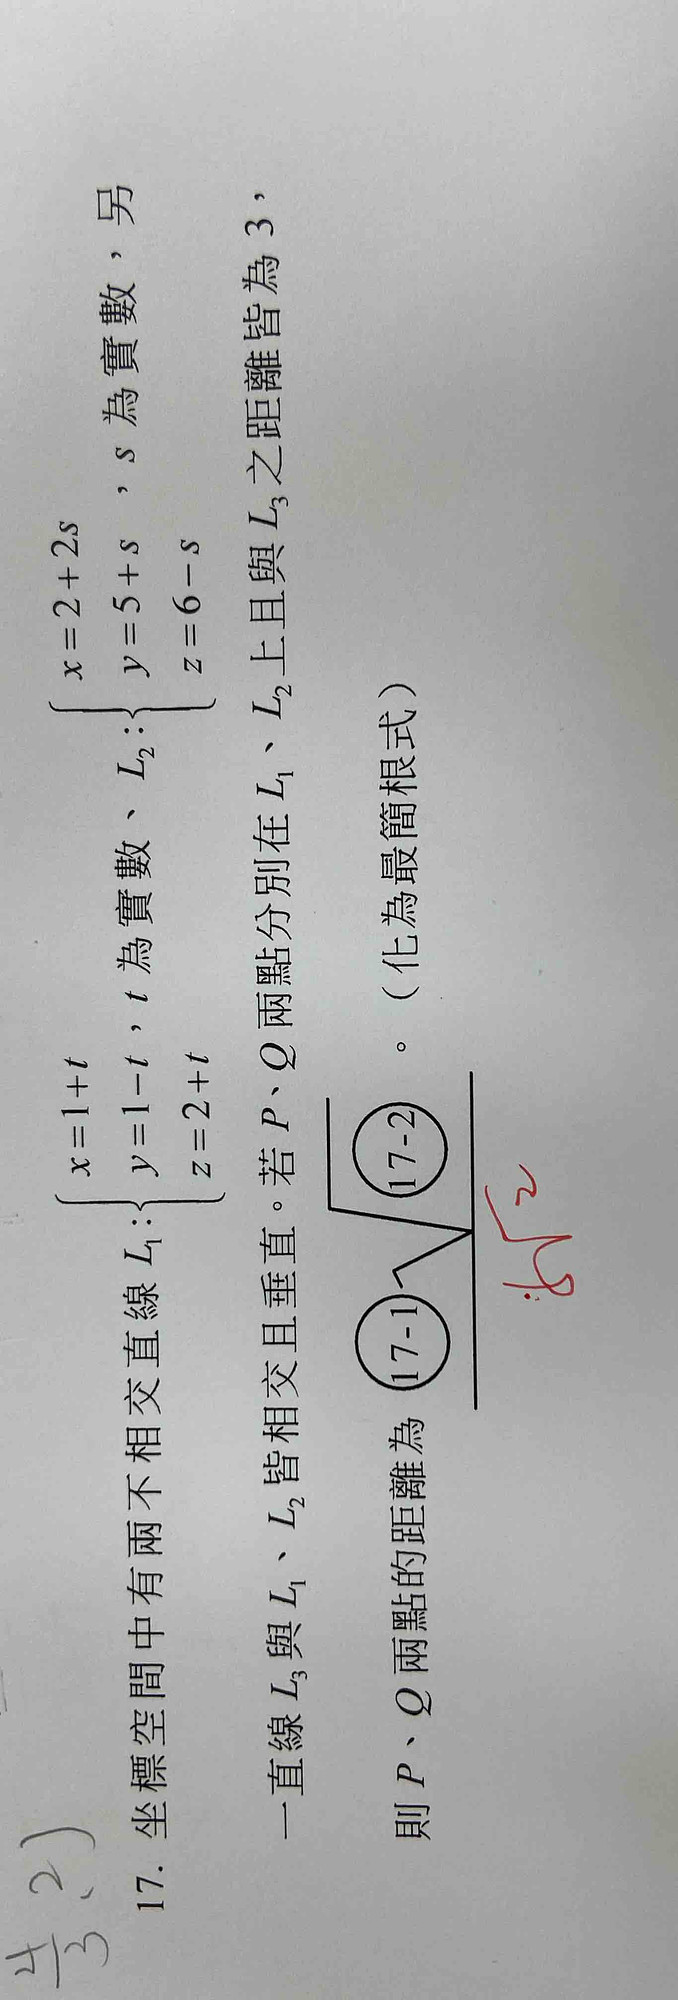 4/3, 2)
17. 坐標空間中有兩不相交直線 L₁：{x=1+t, y=1−t, z=2+t，t 為實數、L₂：{x=2+2s, y=5+s, z=6−s，s 為實數，另
一直線 L₃與 L₁、L₂皆相交且垂直。若 P、Q 兩點分別在 L₁、L₂上且與 L₃之距離皆為 3，
則 P、Q 兩點的距離為 (17-1)√(17-2) 。（化為最簡根式）